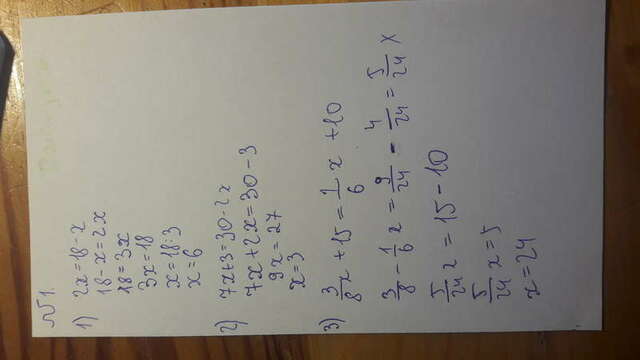 №1.
1) 2x=18-x
18-x=2x
18=3x
3x=18
x=18:3
x=6
2) 7x+3=30-2x
7x+2x=30-3
9x=27
x=3
3) 3/8x+15=1/6x+10
3/8-1/6x=9/24-4/24=5/24x
5/24x=15-10
5/24x=5
x=24